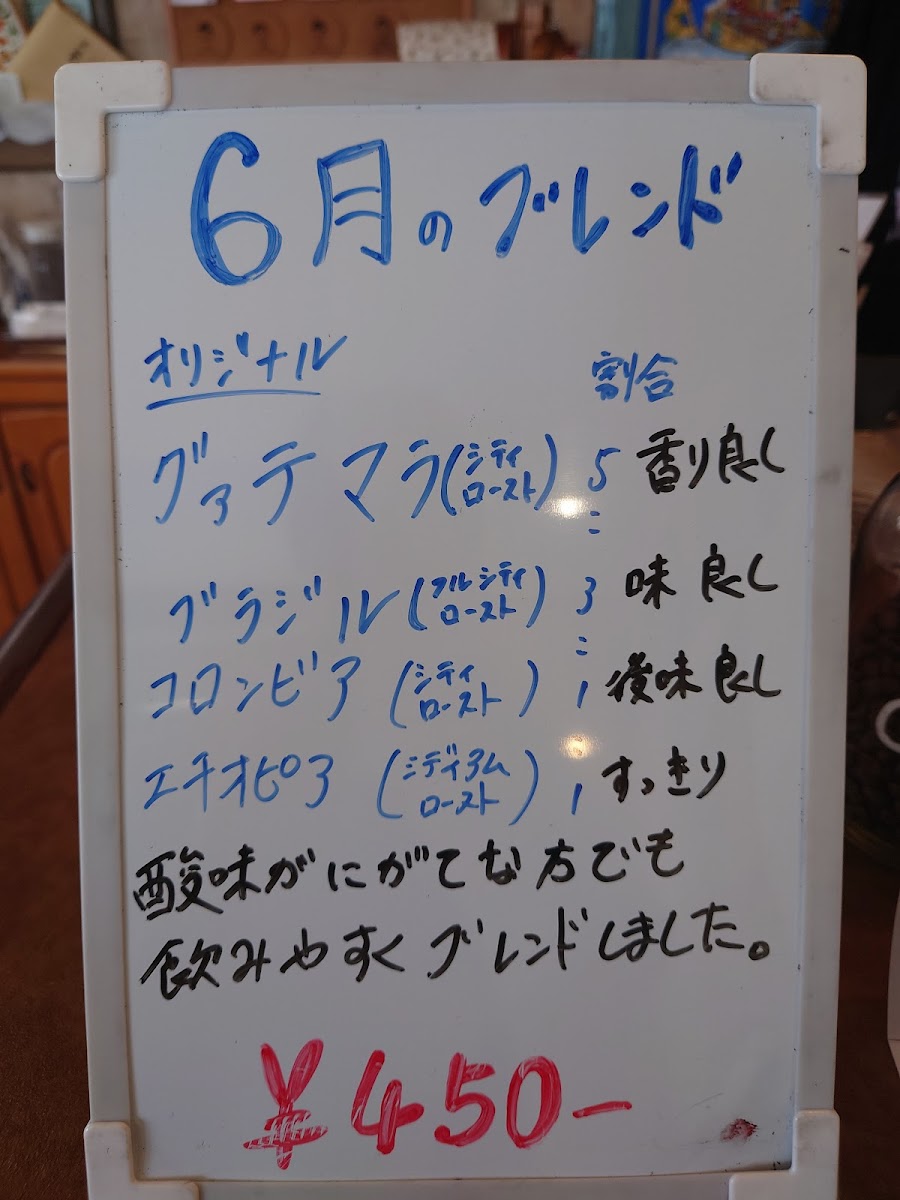 6月のブレンド
オリジナル 割合
グァテマラ(シティロースト) 5 香り良し
:
ブラジル(フルシティロースト) 3 味良し
:
コロンビア(シティロースト) 1 後味良し
エチオピア(ミディアムロースト) 1 すっきり
酸味がにがてな方でも
飲みやすくブレンドしました。
¥450-